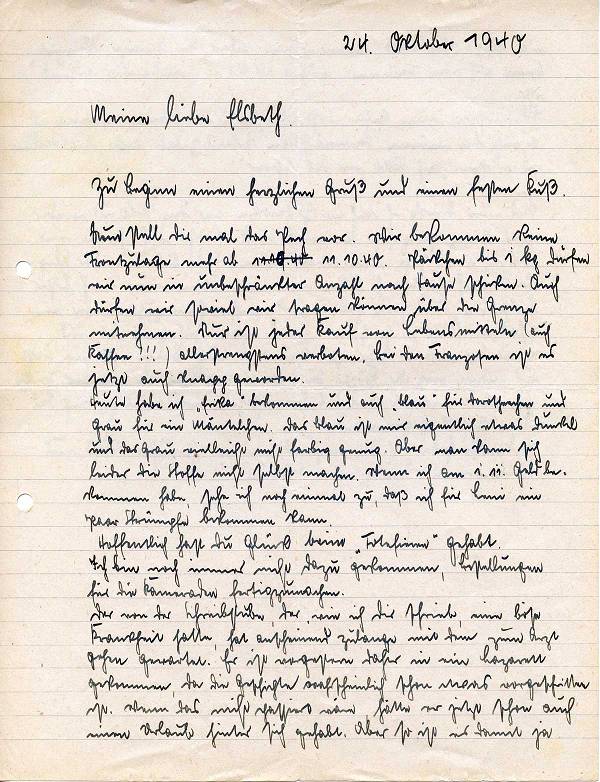 24. Oktober 1940
Meine liebe Elsbeth.
Zu Beginn einen herzlichen Gruß und einen festen Kuß.
Nun stell dir mal das Pech vor. Wir bekommen keine
Frontzulage mehr ab 11.10.40. Päckchen bis 1 kg dürfen
wir nun in unbeschränkter Anzahl nach Hause schicken. Auch
dürfen wir soviel wir tragen können über die Grenze
mitnehmen. Nur ist jeder Kauf von Lebensmitteln (auch
Kaffee !!!) allerstrengstens verboten. Bei den Franzosen ist es
jetzt auch knapp geworden.
Heute habe ich "Erika" bekommen und auch "blau" für Dorothechen und
Grau für ein Mäntelchen. Das Blau ist mir eigentlich etwas dunkel
und das Grau vielleicht nicht farbig genug. Aber man kann sich
leider die Stoffe nicht selbst machen. Wenn ich am 1.11. Geld be-
kommen habe, sehe ich noch einmal zu, daß ich für ein
paar Strümpfe bekommen kann.
Hoffentlich hast Du Glück beim gehabt.
Ich bin noch immer nicht dazu gekommen, Bestellungen
für die Kameraden fertigzumachen.
Der von der Schreibstube, der wie ich dir schrieb, eine böse
Krankheit hatte, hat anscheinend zulange mit dem zum Arzt
gehen gewartet. Er ist vorgestern daher in ein Lazarett
gekommen, da die Geschichte wahrscheinlich schon etwas vorgeschritten
ist. Wenn das nicht passiert wäre hätte er jetzt schon auch
einen Urlaub hinter sich gehabt. Aber so ist es damit ja